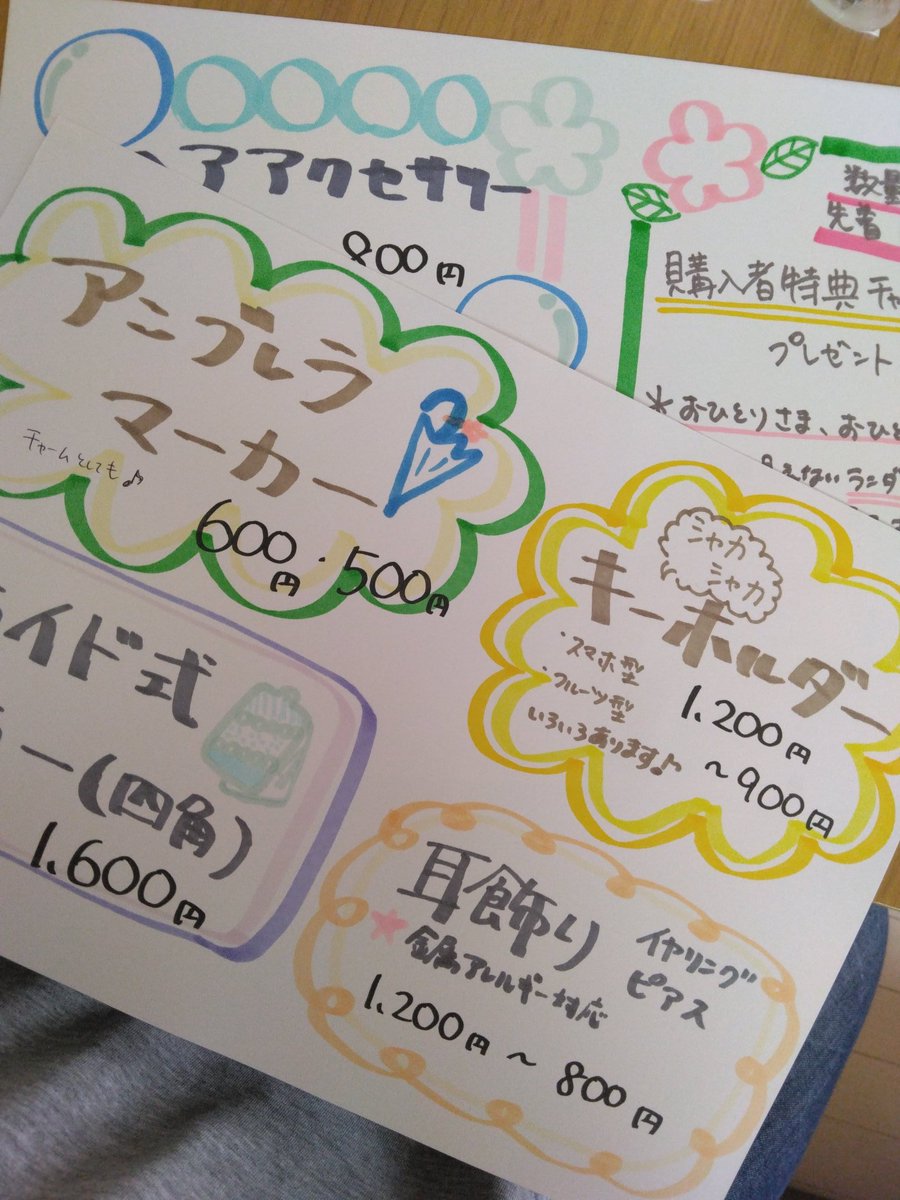 アアクセサリー
800円
数量
先着
購入者特典チャ
プレゼント
*おひとりさま、おひと
えないランダ
アンブレラ
マーカー
チャームとしても♪
600円・500円
シャカ
シャカ
キーホルダー
・スマホ型
・フルーツ型
いろいろあります♪
1,200円
~900円
イド式
ー(四角)
1,600円
耳飾り
イヤリング
ピアス
★金属アレルギー対応
1,200円~800円